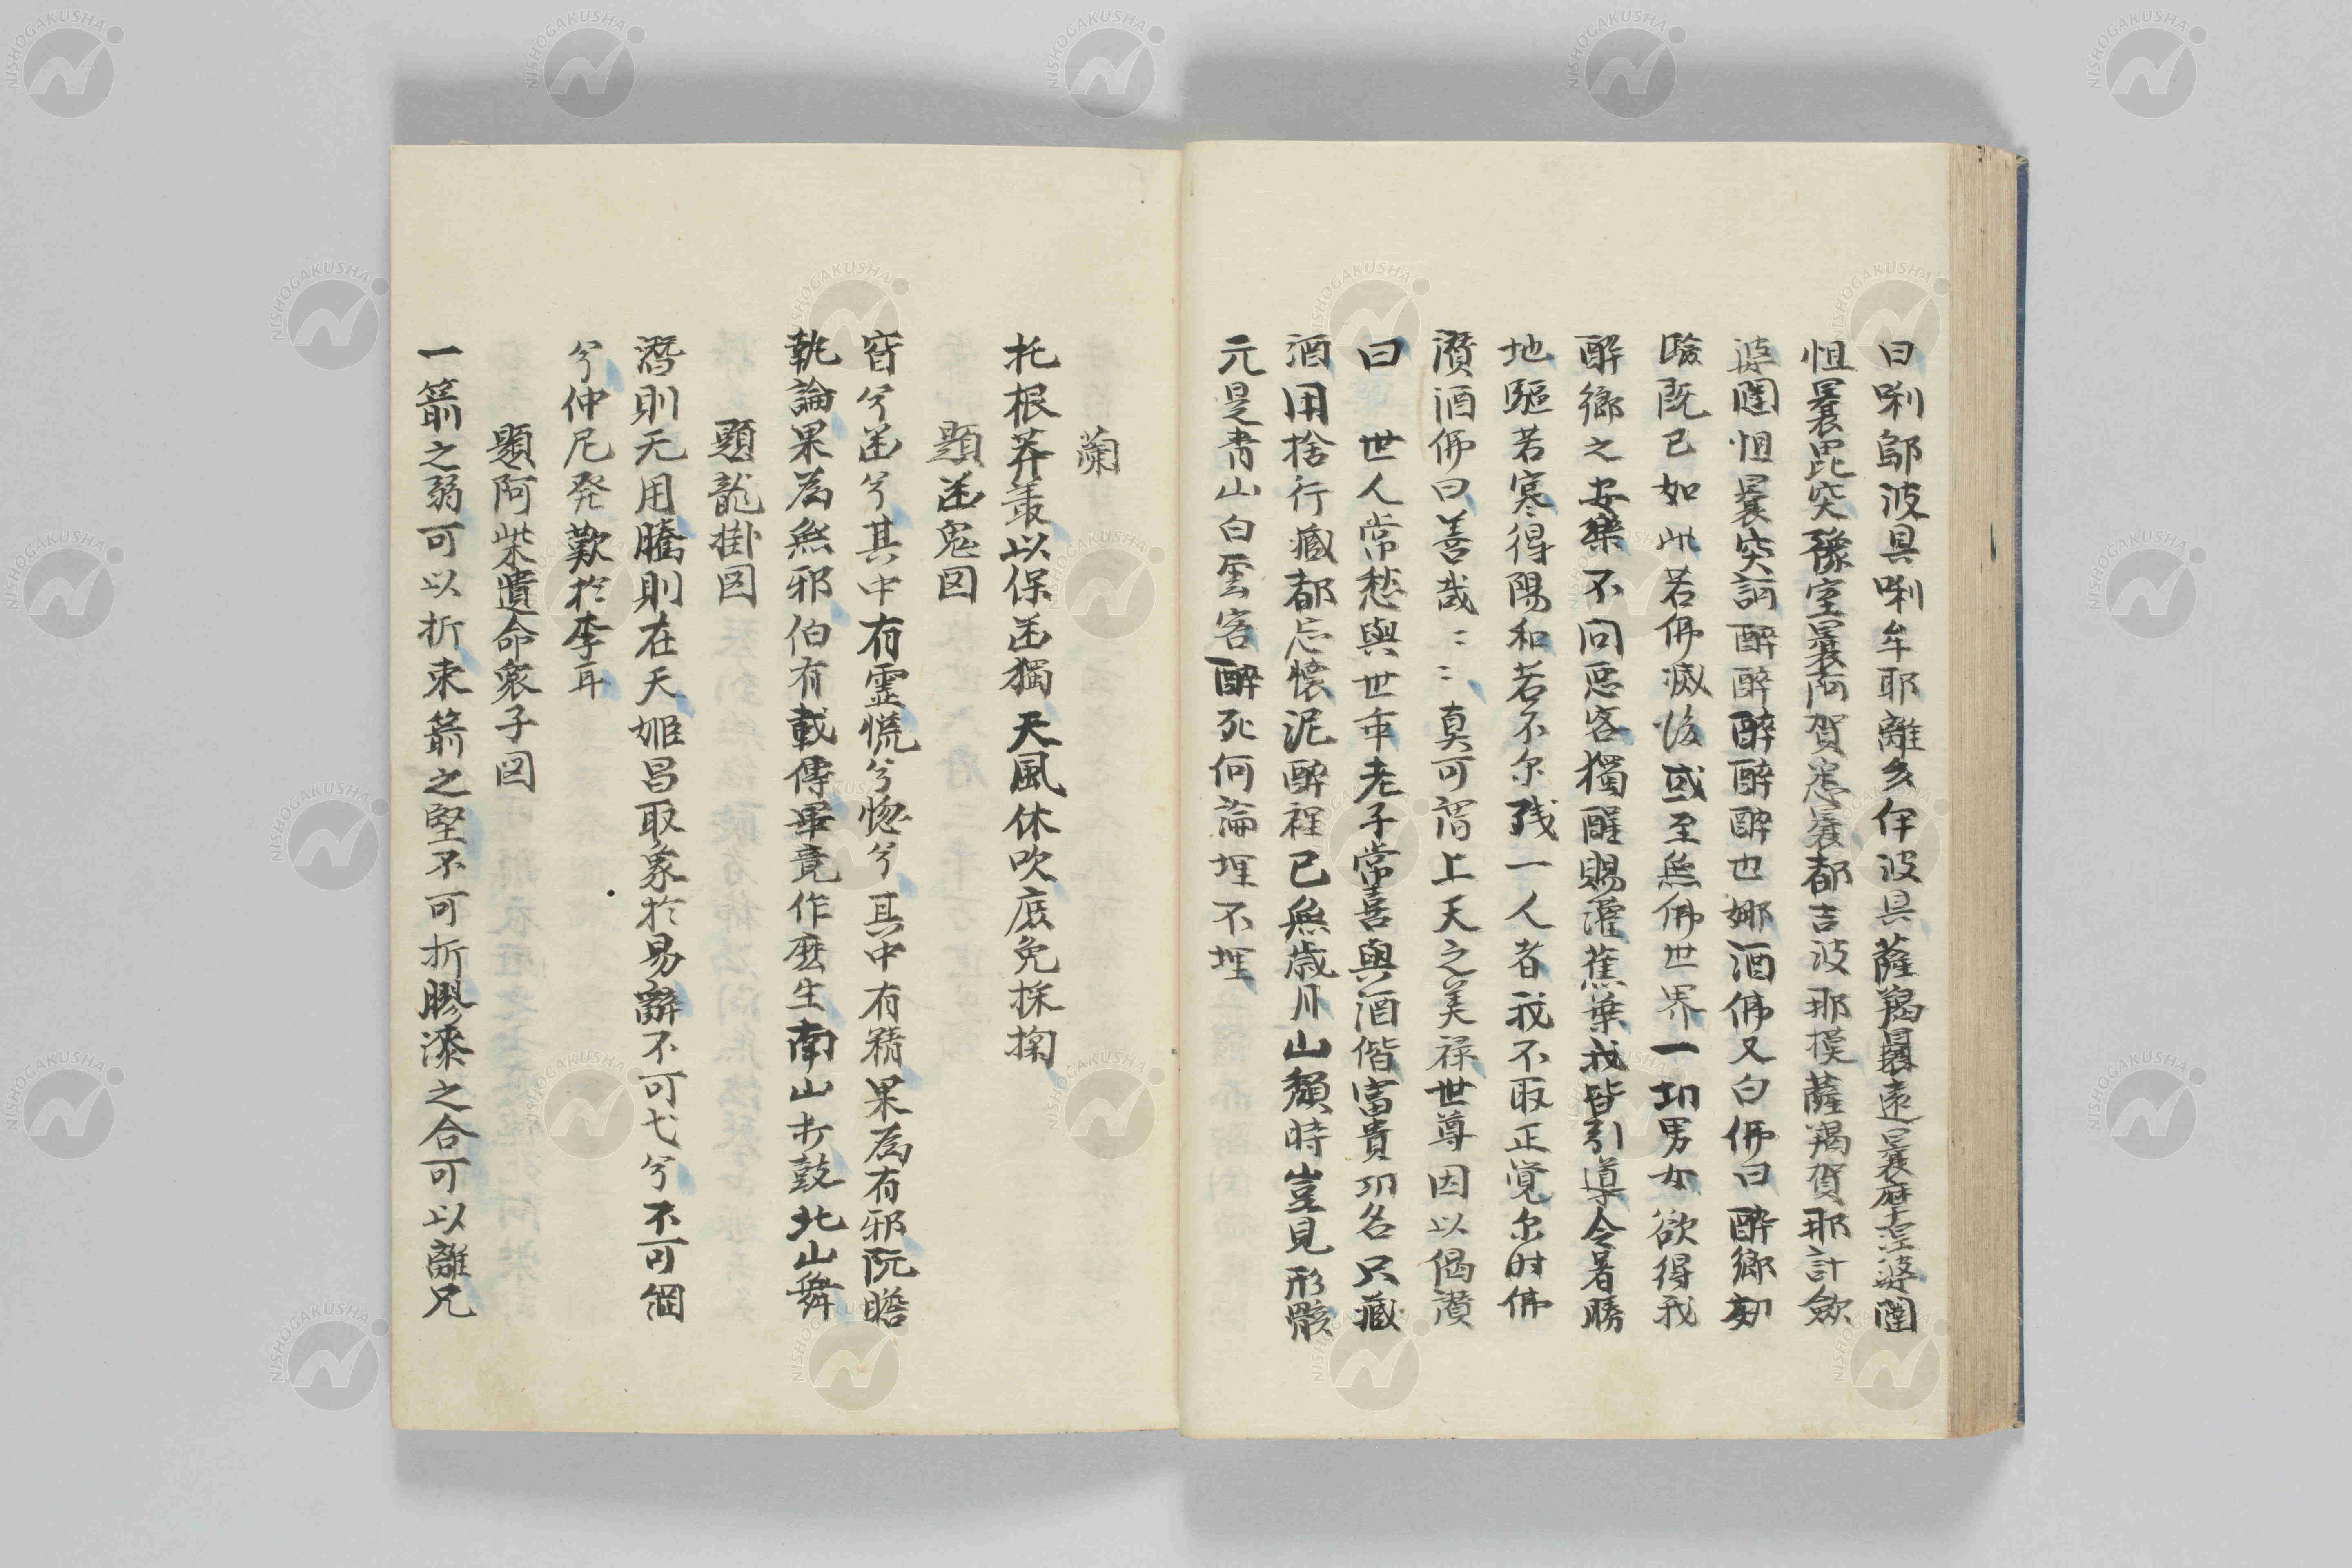 曰唎鄔波具唎牟耶離多伊波具薩羯曩遠曩摩涅婆闥
怛曩毘突豫室曩阿賀恙曩都吉波那摸薩羯賀那計歛
婆闥怛曩突訶酔酔酔酔酔也娜酒佛又白佛曰酔郷劾
験既已如此若佛滅後或至無佛世界一切男女欲得我
酔郷之安樂不問惡客獨醒賜灌蕉葉我皆引導令著勝
地驅若寒得陽和若不尓残一人者我不取正覚尓時佛
讃酒佛曰善哉〻〻真可謂上天之美禄世尊因以偈讃
曰　世人常愁與世乖老子常喜與酒偕富貴功名只蔵
酒用捨行蔵都忘懐泥酔裡已無歳月山頽時豈見形骸
元是青山白雲客酔死何論埋不埋
蘭
托根莽叢以保凾獨天風休吹庶免採掬
題凾鬼図
窅兮凾兮其中有霊慌兮惚兮其中有精果為有邪阮瞻
執論果為無邪伯有載傳畢竟作麼生南山打鼓北山舞
題龍掛図
潜則无用騰則在天姫昌取象於易辭不可弋兮不可網
兮仲尼発歎於李耳
題阿柴遺命衆子図
一箭之弱可以折束箭之堅不可折膠漆之合可以離兄
NISHOGAKUSHA